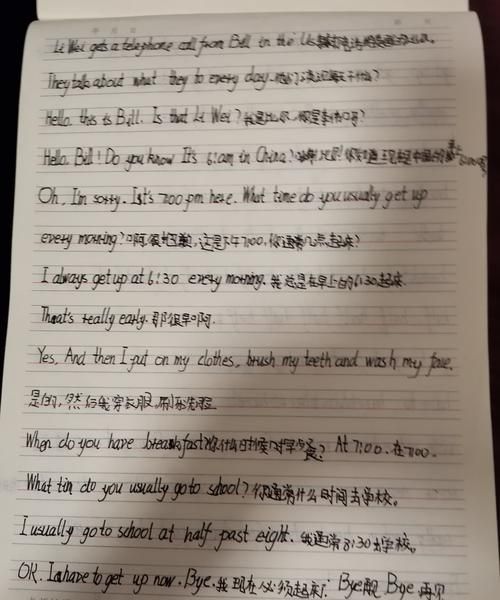 Li Wei gets a telephone call from Bill in the Us
They talk about what they to every day.他们谈论每天干什么?
Hello, this is Bill. Is that Li Wei?我是比尔,你是李伟吗?
Hello, Bill! Do you know It's 6:am in China?你知道现在是中国的早上6:00吗
Oh, I'm sorry. Ist's 7:00 pm here. What time do you usually get up
every morning?啊,很抱歉,这是下午7:00,你通常几点起床?
I always get up at 6:30 every morning.我总是在早上的6:30起床.
That's really early.那很早啊.
Yes, And then I put on my clothes, brush my teeth and wash my face.
是的,然后我穿衣服,刷牙洗脸
When do you have breakfast?你什么时候吃早餐? At 7:00.在7:00.
What tin do you usually go to school?你通常什么时间去学校。
I usually go to school at half past eight.我通常8:30去学校。
OK. I have to get up now. Bye.我现在必须起床了. Bye Bye 再见